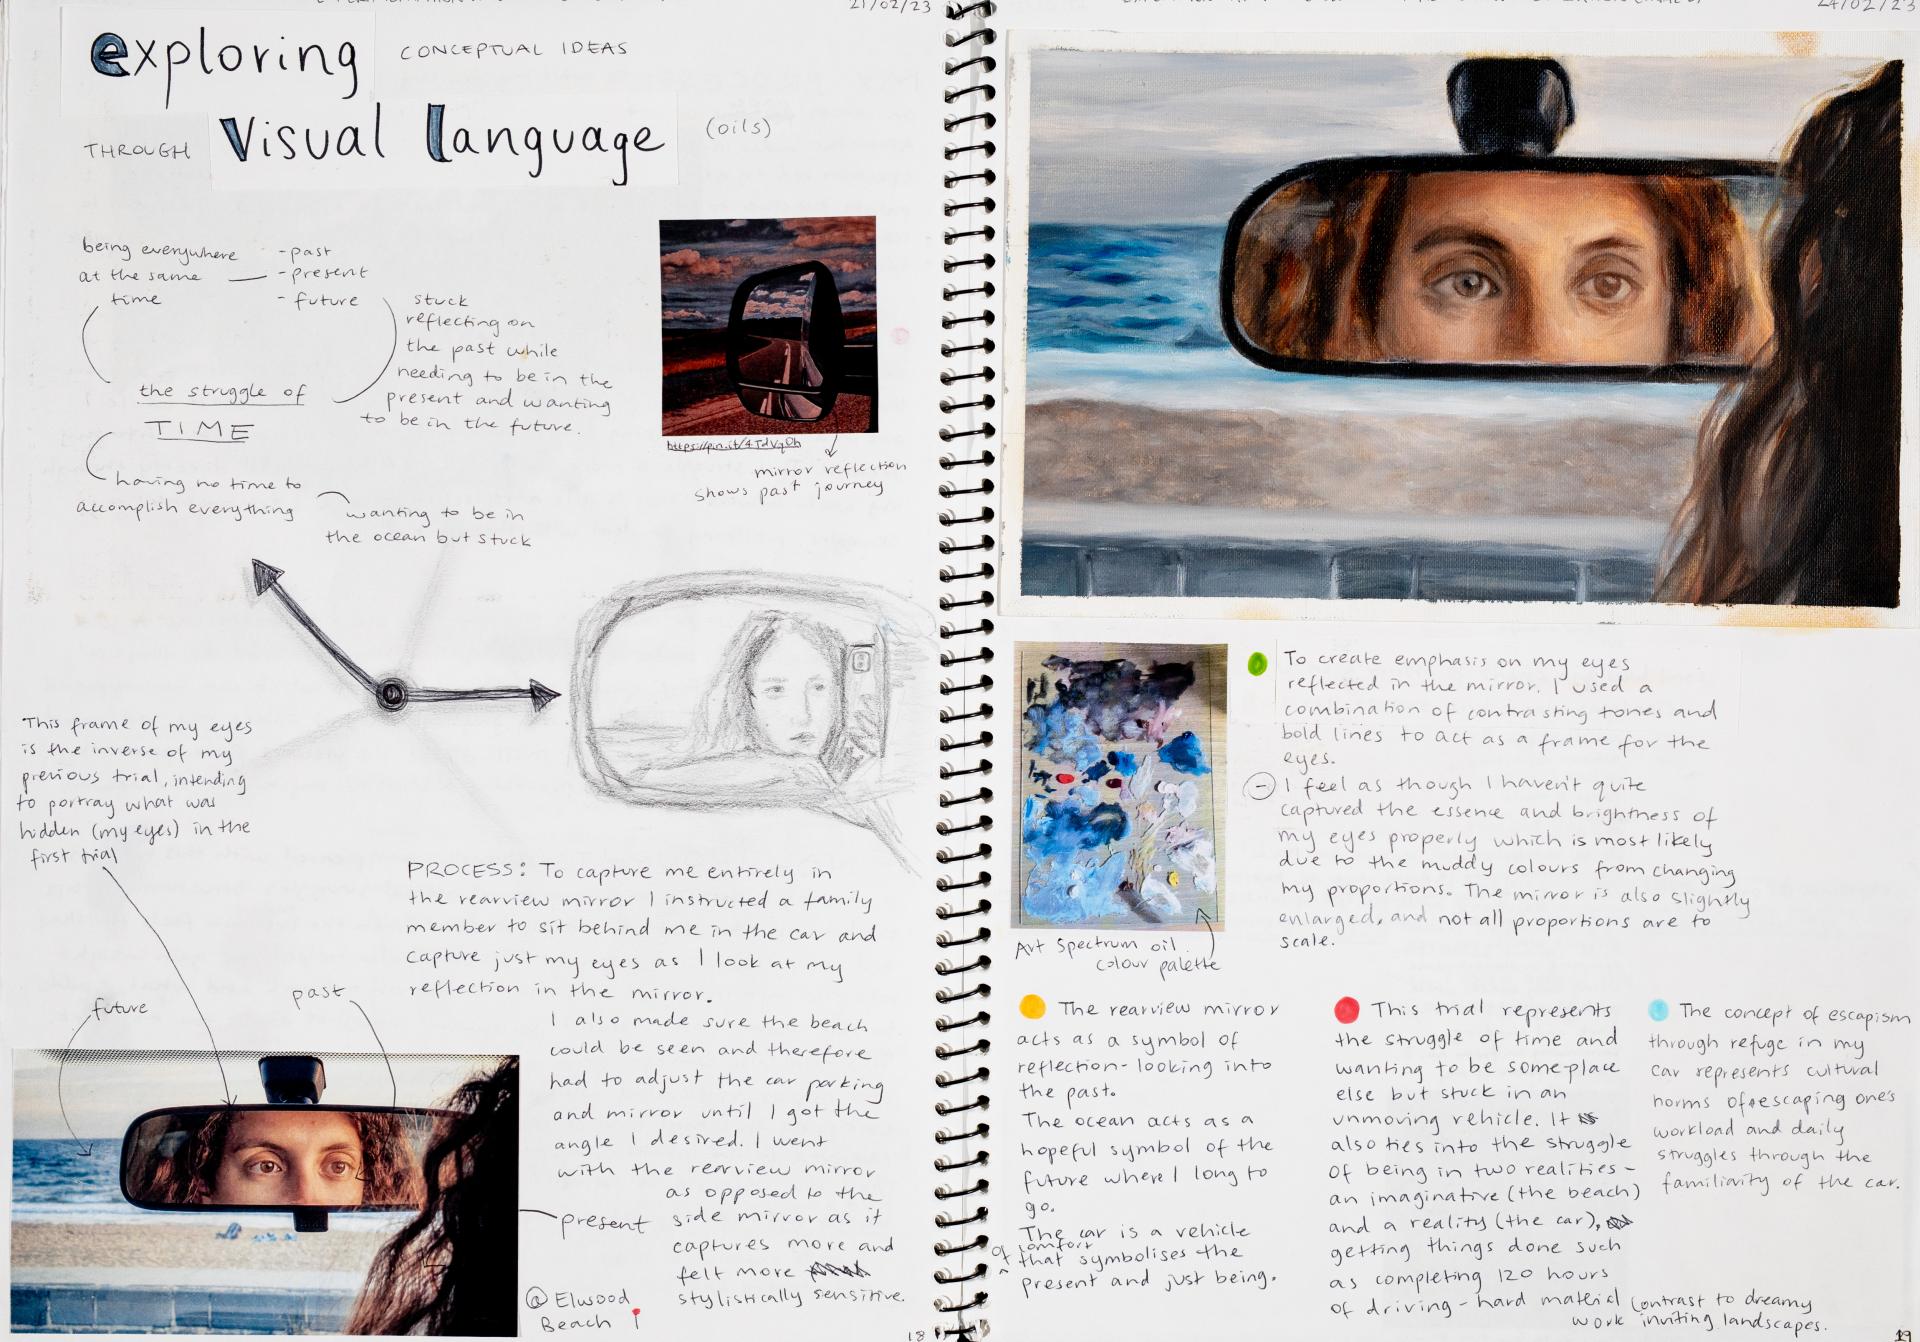 21/02/23
exploring CONCEPTUAL IDEAS
THROUGH Visual language (oils)
being everywhere
at the same
time
- past
- present
- future
stuck
reflecting on
the past while
needing to be in the
present and wanting
to be in the future.
the struggle of
TIME
having no time to
accomplish everything
wanting to be in
the ocean but stuck
mirror reflection
shows past journey
This frame of my eyes
is the inverse of my
previous trial, intending
to portray what was
hidden (my eyes) in the
first trial
future
past
PROCESS: To capture me entirely in
the rearview mirror I instructed a family
member to sit behind me in the car and
capture just my eyes as I look at my
reflection in the mirror.
I also made sure the beach
could be seen and therefore
had to adjust the car parking
and mirror until I got the
angle I desired. I went
with the rearview mirror
as opposed to the
side mirror as it
captures more and
felt more
stylistically sensitive.
present
@ Elwood
Beach
18
24/02/23
Art Spectrum oil
colour palette
To create emphasis on my eyes
reflected in the mirror. I used a
combination of contrasting tones and
bold lines to act as a frame for the
eyes.
- I feel as though I haven't quite
captured the essence and brightness of
my eyes properly which is most likely
due to the muddy colours from changing
my proportions. The mirror is also slightly
enlarged, and not all proportions are to
scale.
The rearview mirror
acts as a symbol of
reflection - looking into
the past.
The ocean acts as a
hopeful symbol of the
future where I long to
go.
The car is a vehicle
of comfort
that symbolises the
present and just being.
This trial represents
the struggle of time and
wanting to be someplace
else but stuck in an
unmoving vehicle. It
also ties into the struggle
of being in two realities -
an imaginative (the beach)
and a reality (the car),
getting things done such
as completing 120 hours
of driving - hard material contrast to dreamy
work inviting landscapes.
The concept of escapism
through refuge in my
car represents cultural
norms of escaping one's
workload and daily
struggles through the
familiarity of the car.
19